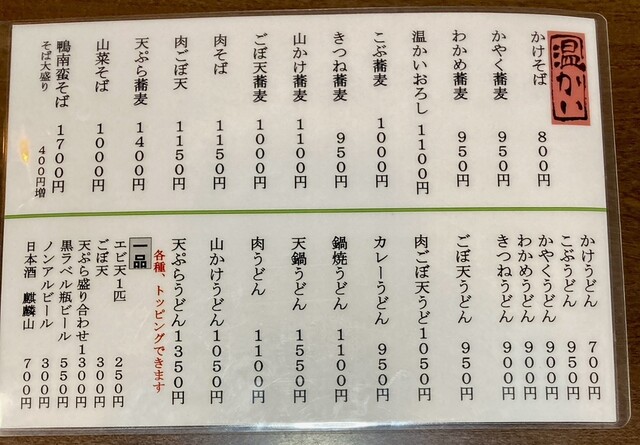 温かい
かけそば 800円
かやく蕎麦 950円
わかめ蕎麦 950円
温かいおろし 1100円
こぶ蕎麦 1000円
きつね蕎麦 950円
山かけ蕎麦 1100円
ごぼ天蕎麦 1000円
肉そば 1150円
肉ごぼ天 1150円
天ぷら蕎麦 1400円
山菜そば 1000円
鴨南蛮そば 1700円
そば大盛り 400円増
かけうどん 700円
こぶうどん 950円
かやくうどん 900円
わかめうどん 900円
きつねうどん 900円
ごぼ天うどん 950円
肉ごぼ天うど 1050円
カレーうどん 950円
鍋焼うどん 1100円
天鍋うどん 1550円
肉うどん 1100円
山かけうどん 1050円
天ぷらうどん 1350円
各種、トッピングできます
一品
エビ天1匹 250円
ごぼ天 300円
天ぷら盛り合わせ 1300円
黒ラベル瓶ビール 550円
ノンアルビール 300円
日本酒 麒麟山 700円